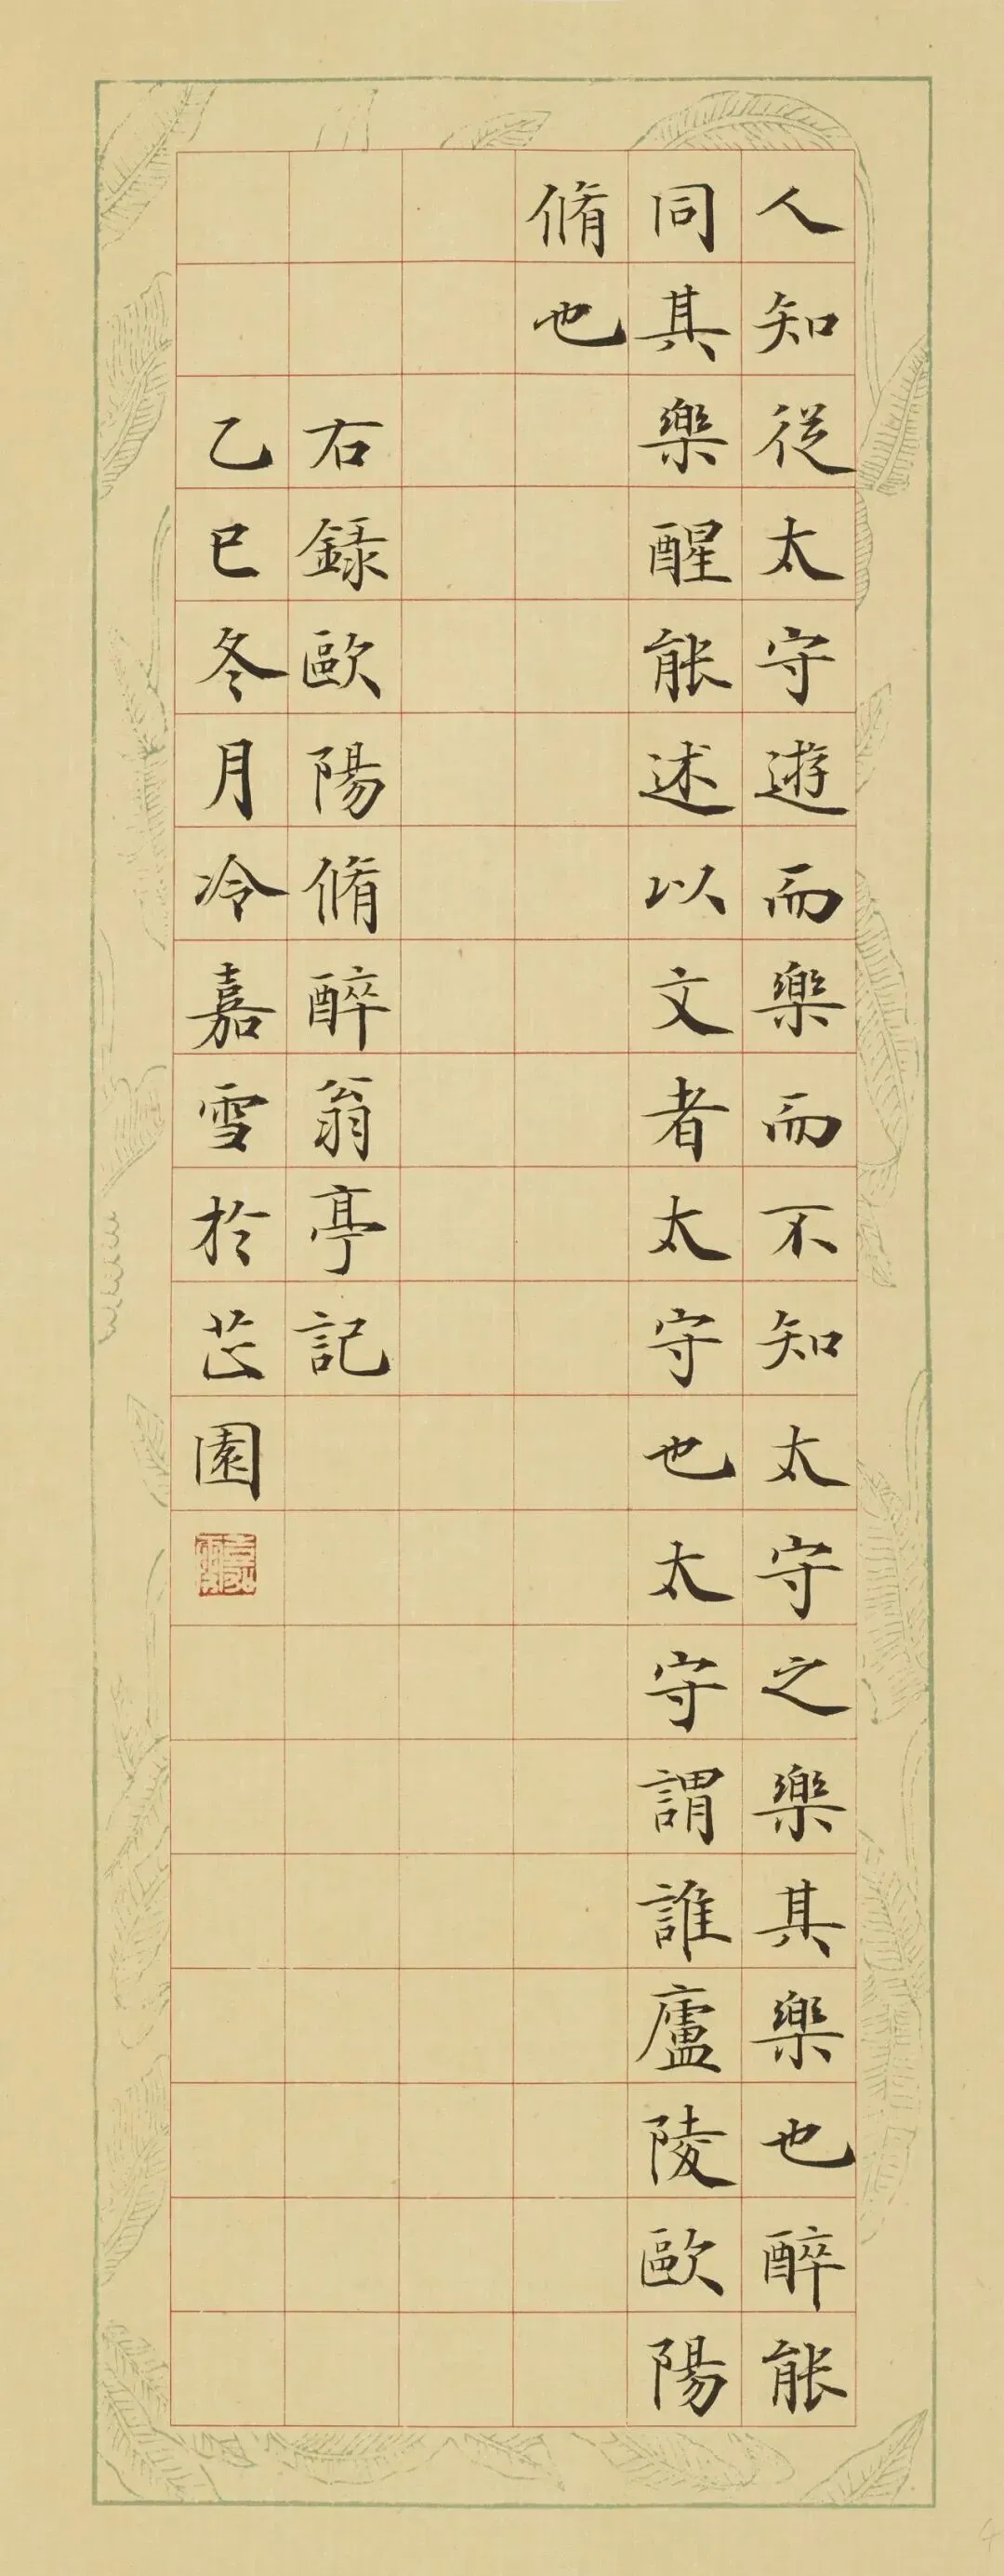 人知從太守遊而樂而不知太守之樂其樂也醉能
同其樂醒能述以文者太守也太守謂誰廬陵歐陽
脩也
右録歐陽脩醉翁亭記
乙巳冬月冷嘉雪於芷園